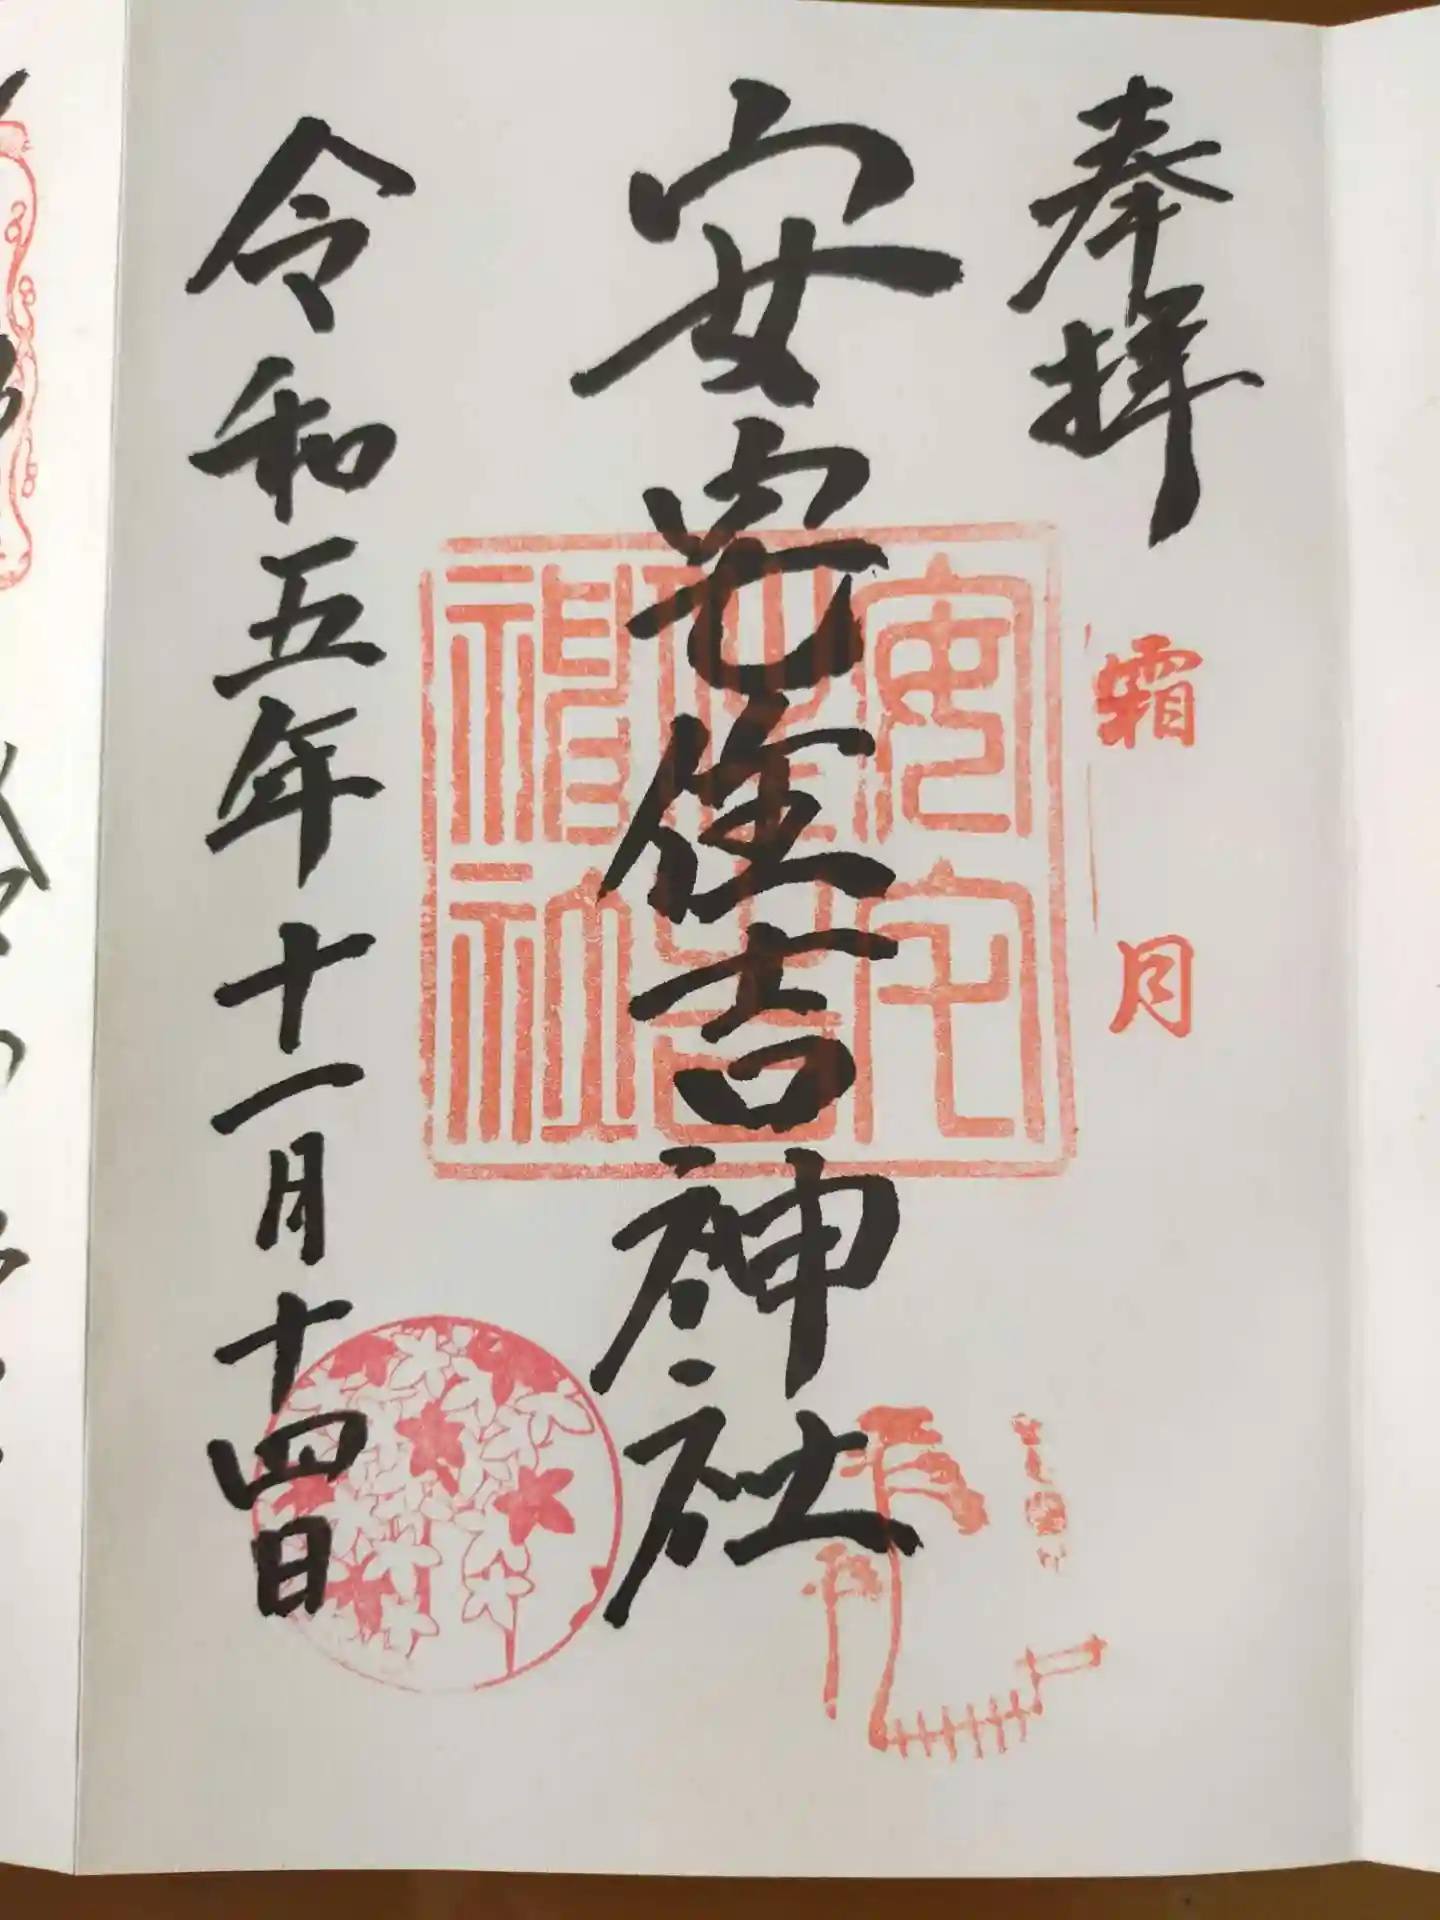 奉拝
霜月
安宅住吉神社
安宅
住吉
神社
令和五年十一月十四日